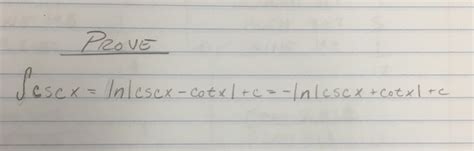 PROVE
∫cscx = ln|cscx - cotx| + c = -ln|cscx + cotx| + c